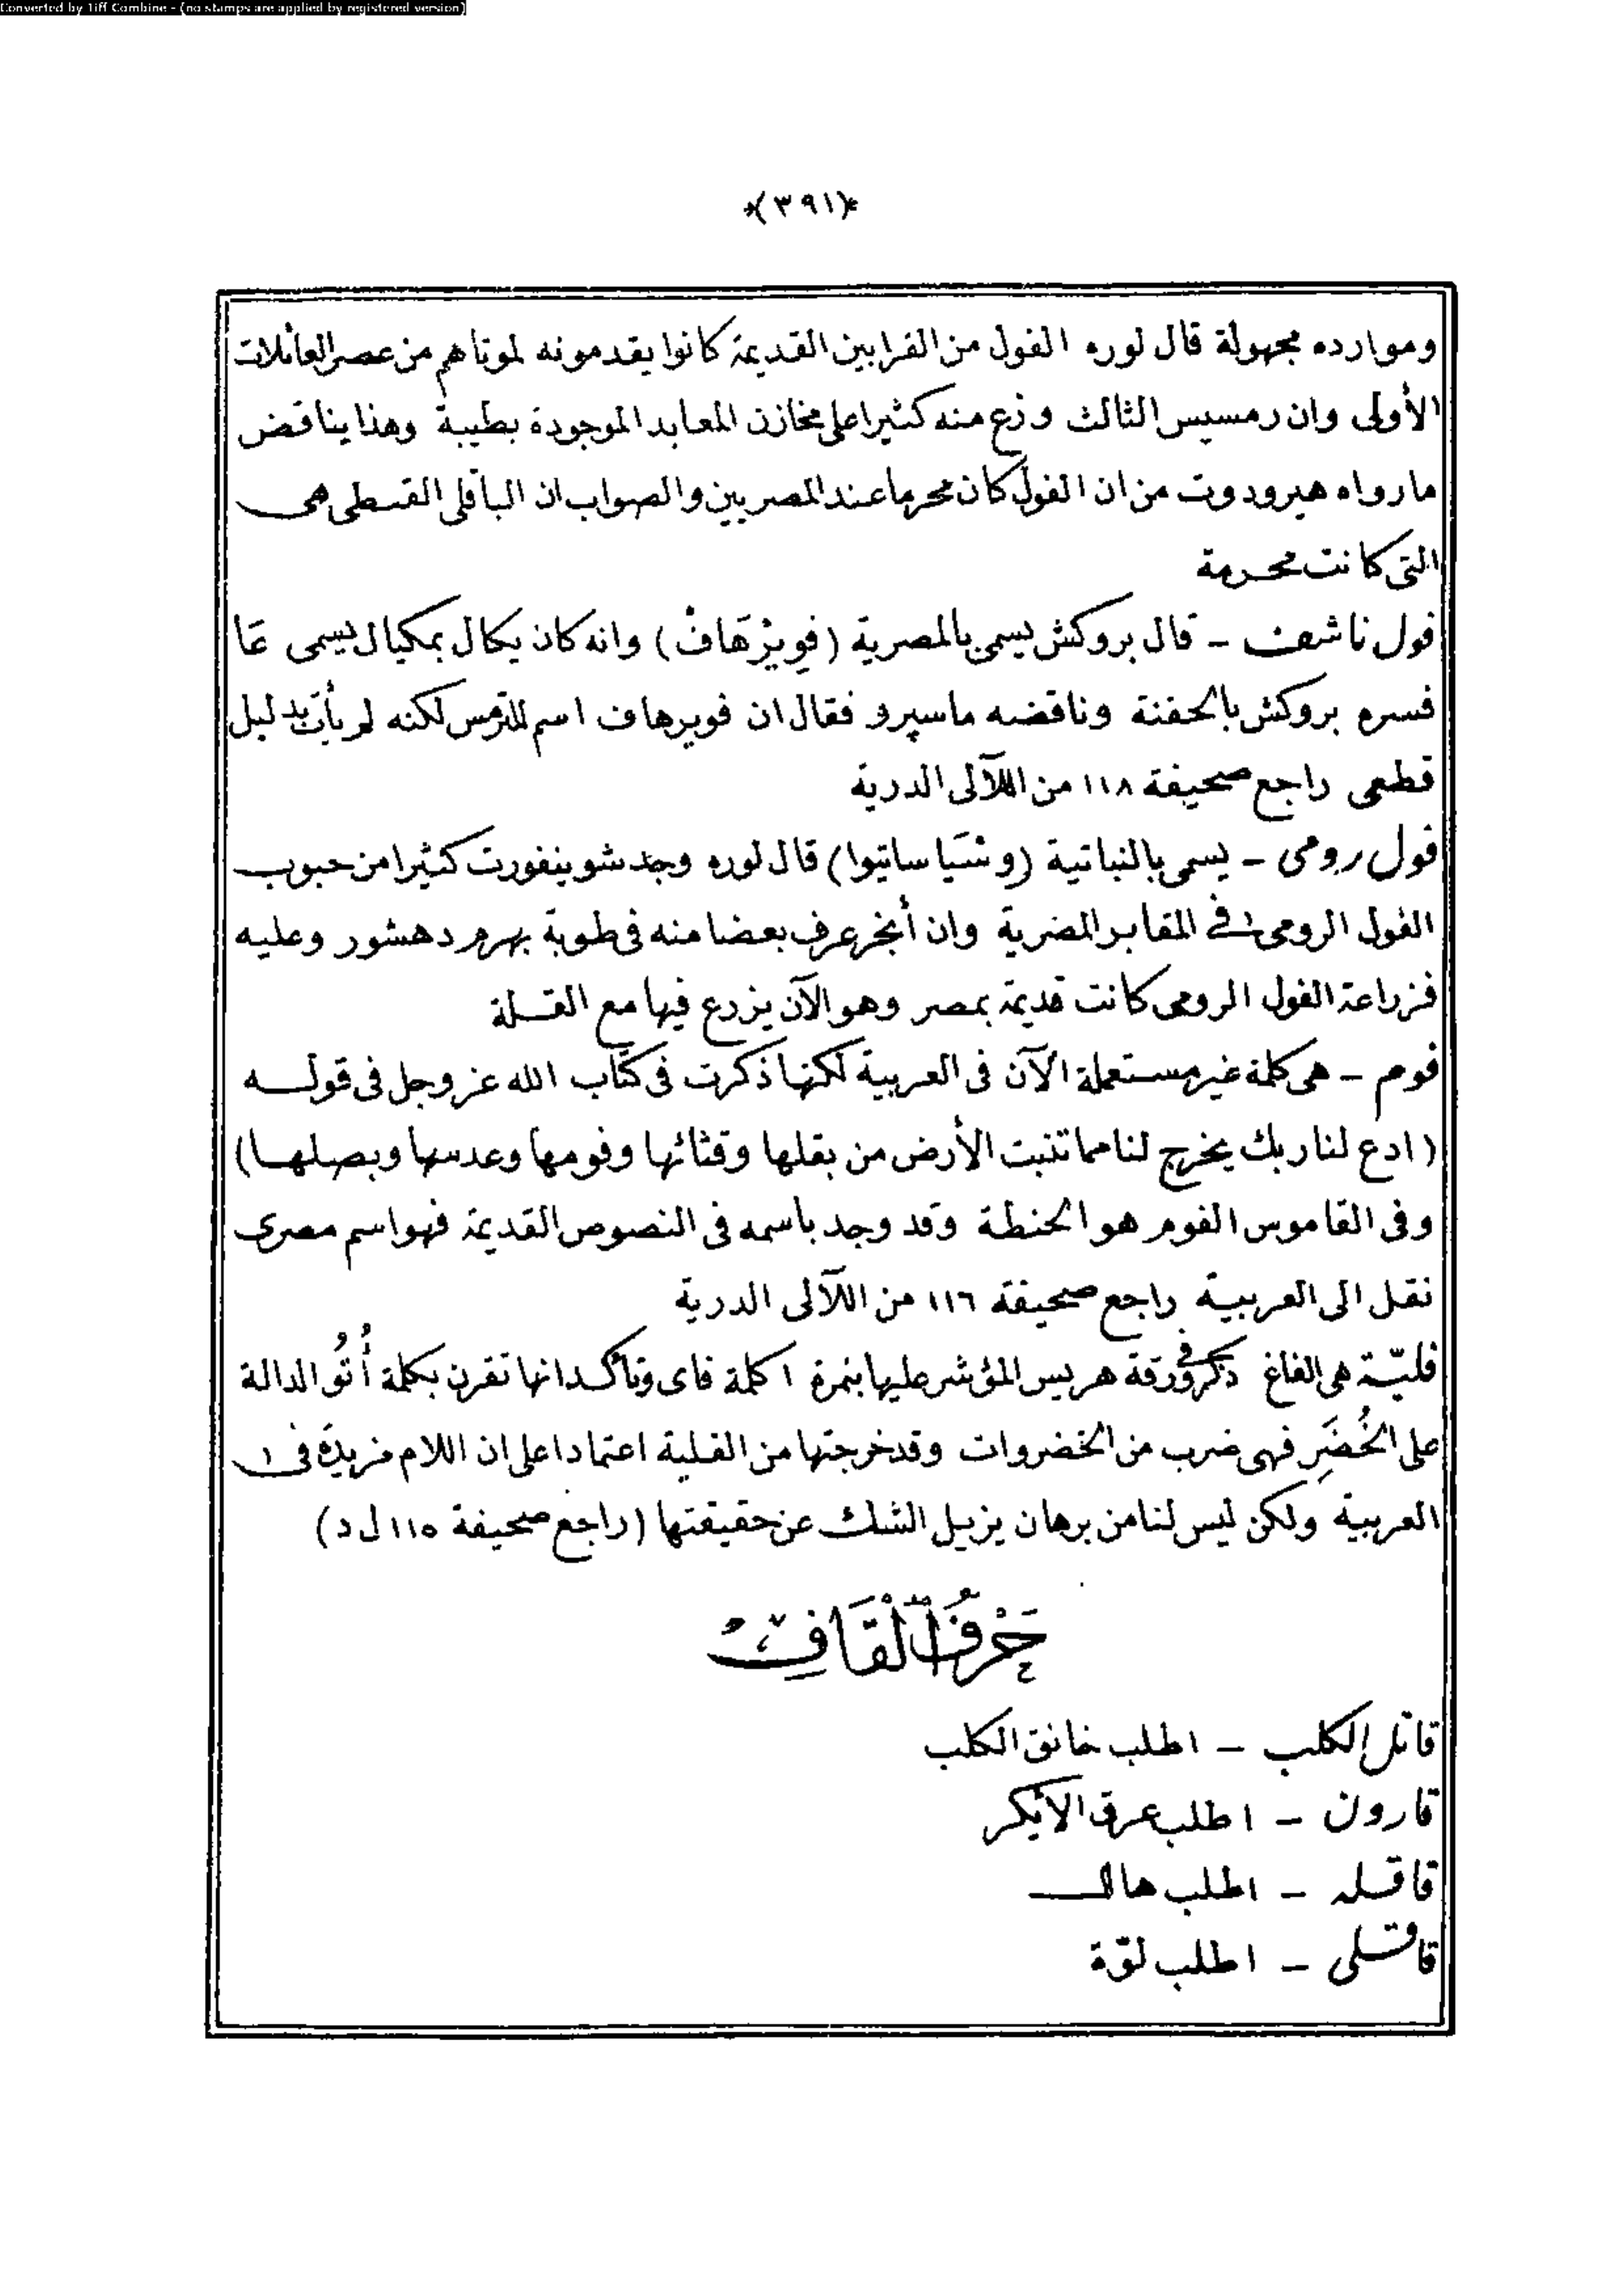 Converted by Tiff Combine - (no stamps are applied by registered version)
*(٣٩١)*
وموارده مجهولة قال لوره الفول من القرابين القديمة كانوا يقدمونه لموتاهم من عصر العائلات
الأولى وان رمسيس الثالث وزع منه كثيرا على مخازن المعابد الموجودة بطيبة وهذا يناقض
ما رواه هيرودوت من ان الفول كان محرما عند المصريين والصواب ان الباقلى القبطى هى
التى كانت محرمة
فول ناشف – قال بروكش يسمى بالمصرية (فويرْهَافْ) وانه كان يكال بمكيال يسمى عَا
فسره بروكش بالحفنة وناقضه ماسپرو فقال ان فويرهاف اسم للترمس لكنه لم يأت بدليل
قطعى راجع صحيفة ١١٨ من اللآلى الدرية
فول رومى – يسمى بالنباتية (وشيا ساتيوا) قال لوره وجد شوينفورت كثيرا من حبوب
الفول الرومى فى المقابر المصرية وان أنجر عرف بعضا منه فى طوبة بهرم دهشور وعليه
فزراعة الفول الرومى كانت قديمة بمصر وهو الآن يزرع فيها مع القلة
فوم – هى كلمة غير مستعملة الآن فى العربية لكنها ذكرت فى كتاب الله عز وجل فى قوله
(ادع لنا ربك يخرج لنا مما تنبت الأرض من بقلها وقثائها وفومها وعدسها وبصلها)
وفى القاموس الفوم هو الحنطة وقد وجد باسمه فى النصوص القديمة فهو اسم مصرى
نقل الى العربية راجع صحيفة ١١٦ من اللآلى الدرية
فليّة هى الفاغ ذكر فى ورقة هريس المؤشر عليها بنمرة ١ كلمة فاى وتأكد انها تقرن بكلمة أُتُو الدالة
على الخُضَرِ فهى ضرب من الخضروات وقد خرجتها من الفلية اعتمادا على ان اللام مزيدة فى
العربية ولكن ليس لنا من برهان يزيل الشك عن حقيقتها (راجع صحيفة ١١٥ ل د)
حَرْفُ الْقَافِ
قاتل الكلب – اطلب خانق الكلب
قارون – اطلب عرق الايكر
قاقله – اطلب هال
قاقلى – اطلب لوّة